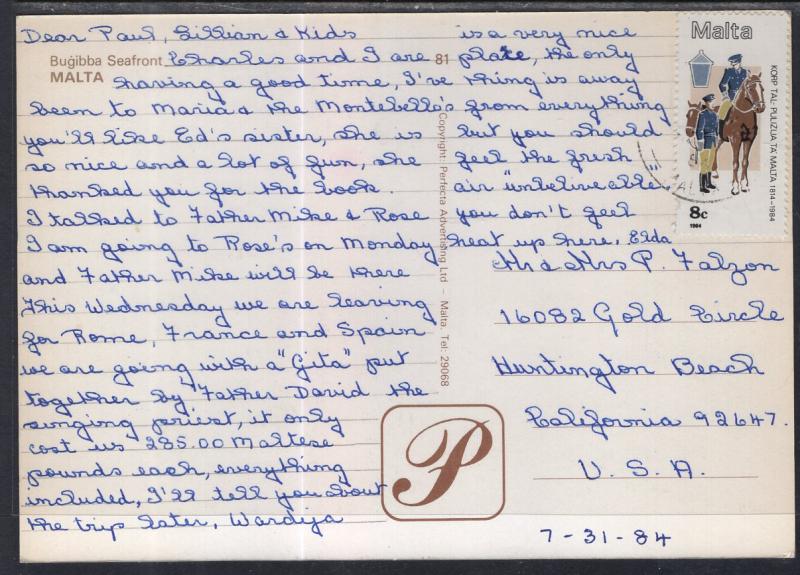 Dear Paul, Lillian & Kids
Buġibba Seafront
MALTA
81
Charles and I are
having a good time, I've
been to Maria & the Montebello's
you'll like Ed's sister, she is
so nice and a lot of fun, she
thanked you for the book.
I talked to Father Mike & Rose
I am going to Rose's on Monday
and Father Mike will be there
This Wednesday we are leaving
for Rome, France and Spain
we are going with a "Gita" put
together by Father David the
singing priest, it only
cost us 285.00 Maltese
pounds each, everything
included, I'll tell you about
the trip later, Wardija
is a very nice
place, the only
thing is away
from everything
but you should
feel the fresh
air "unbeliveable
you don't feel
heat up here, Elda
Copyright: Perfecta Advertising Ltd – Malta. Tel: 29068
Malta
KORP TAL-PULIZIJA TA MALTA 1814-1984
8c
1984
Mr & Mrs P. Falzon
16082 Gold Circle
Huntington Beach
California 92647.
U. S. A.
P
7-31-84